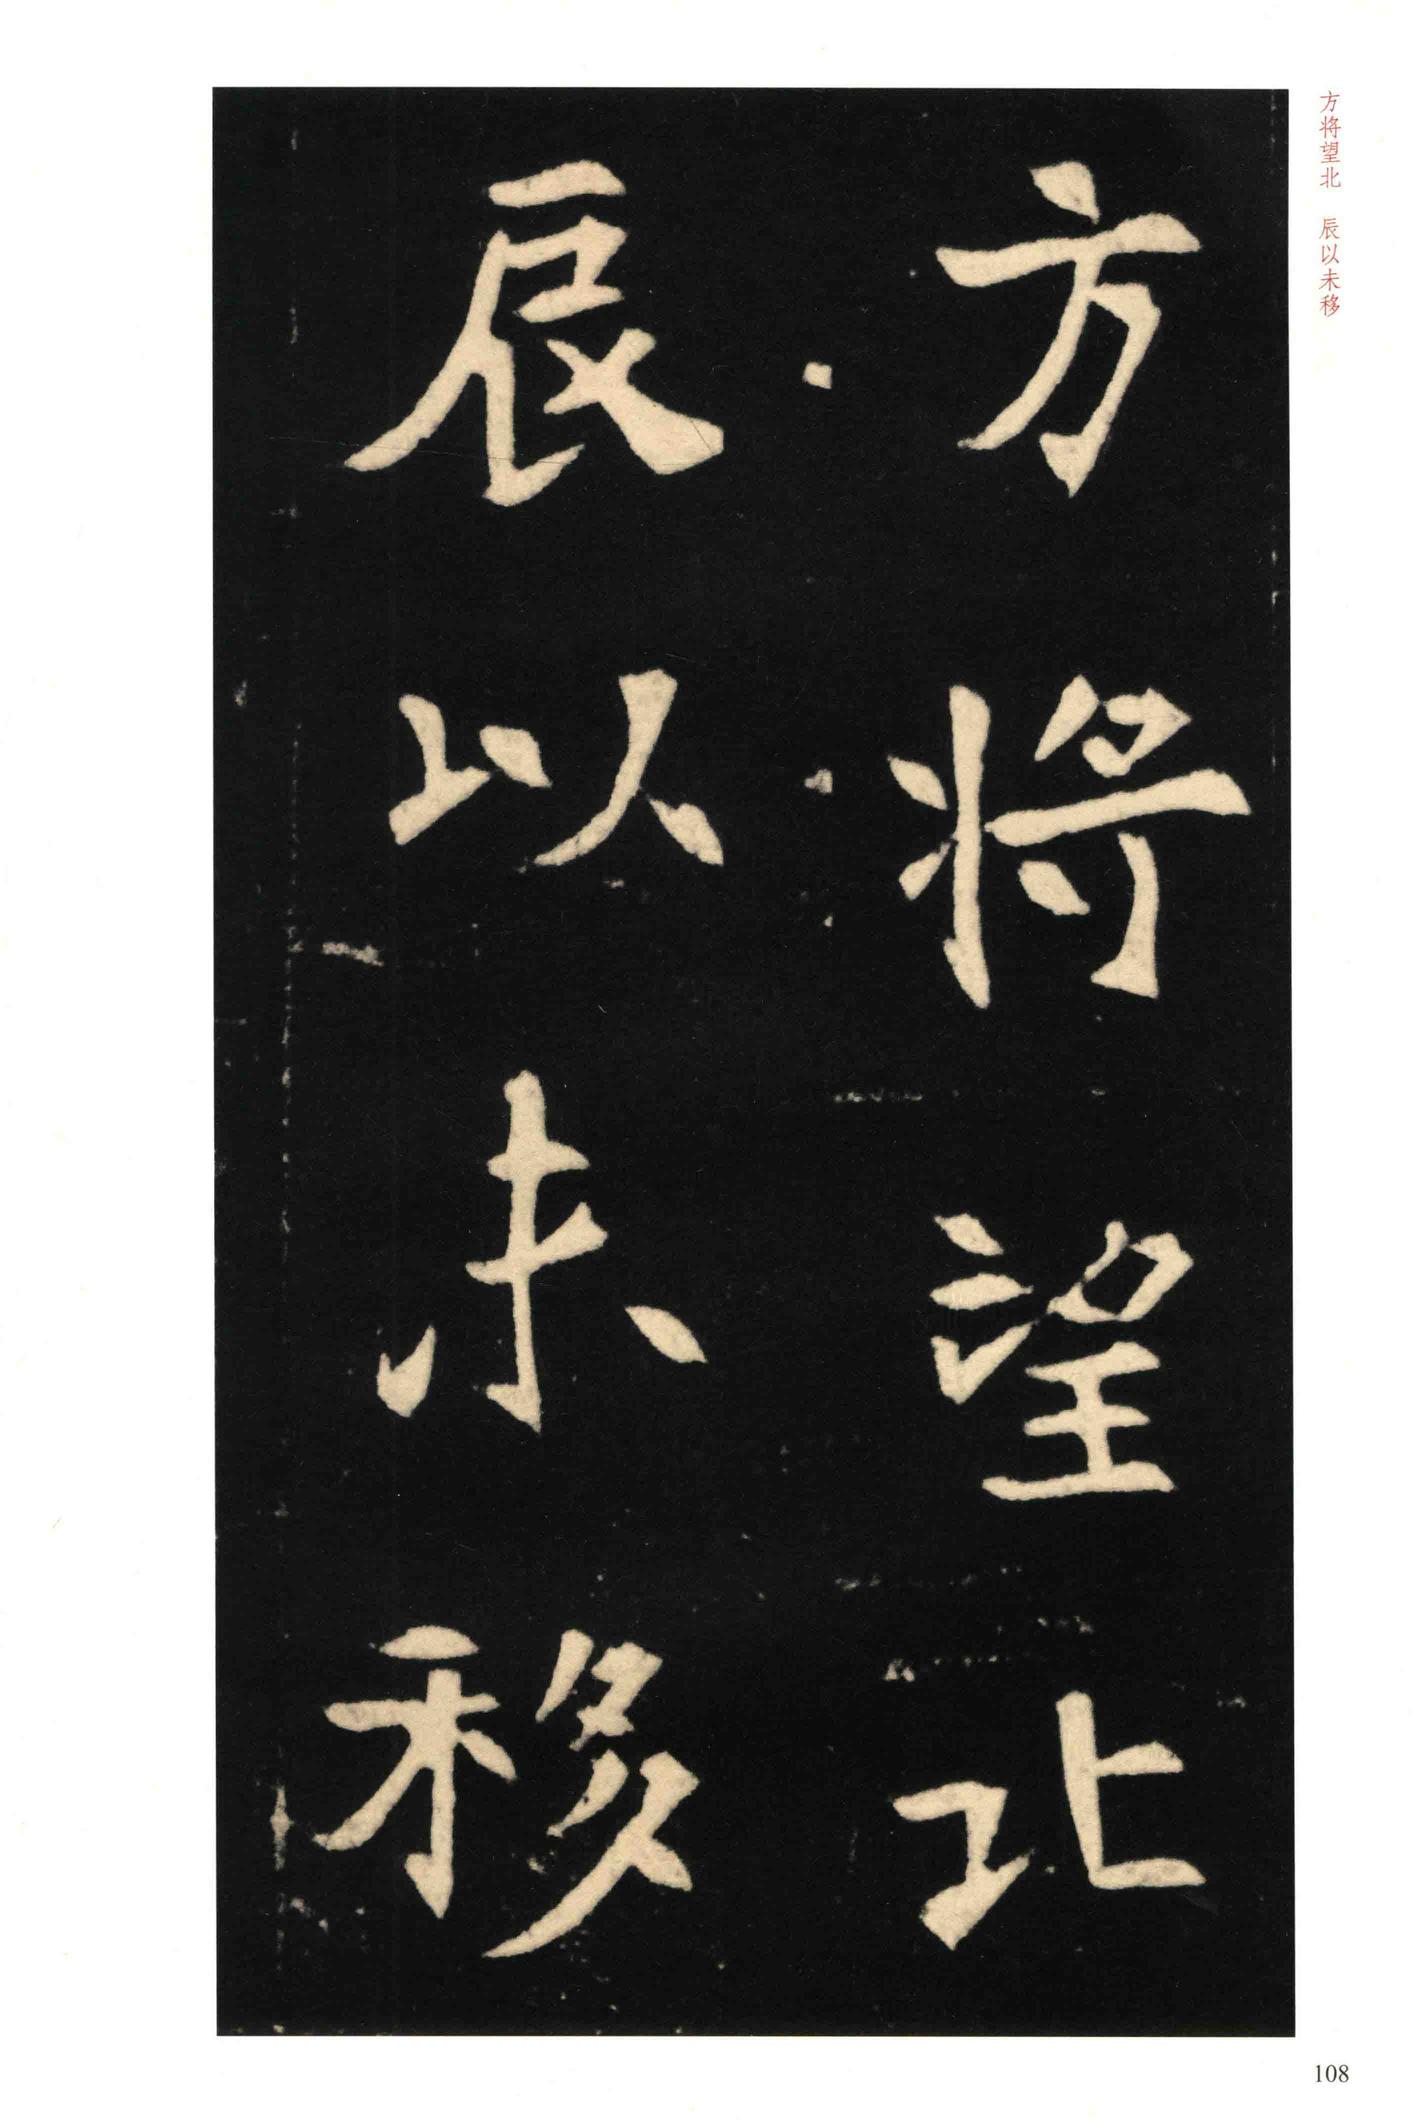 方将望北
辰以未移
方将望北 辰以未移
108